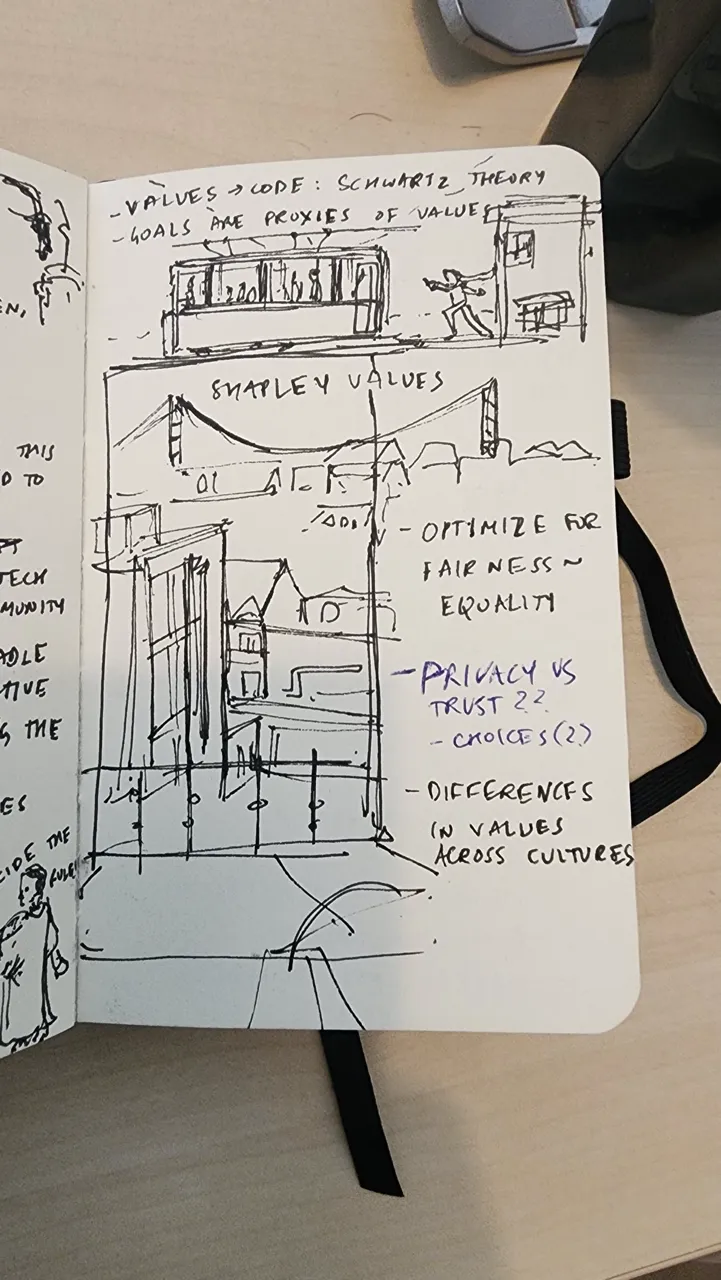 EN,
THIS
D TO
PT
TECH
MUNITY
ADLE
TIVE
G THE
ES
CIDE THE
RULE
- VALUES → CODE : SCHWARTZ THEORY
- GOALS ARE PROXIES OF VALUES
SHAPLEY VALUES
- OPTIMIZE FOR
FAIRNESS ~
EQUALITY
- PRIVACY VS
TRUST ??
- CHOICES (?)
- DIFFERENCES
IN VALUES
ACROSS CULTURES